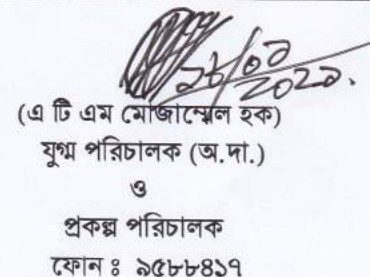 ২৮/০৯
২০২১.
(এ টি এম মোজাম্মেল হক)
যুগ্ম পরিচালক (অ.দা.)
ও
প্রকল্প পরিচালক
ফোন ঃ ৯৫৮৮৪১৭